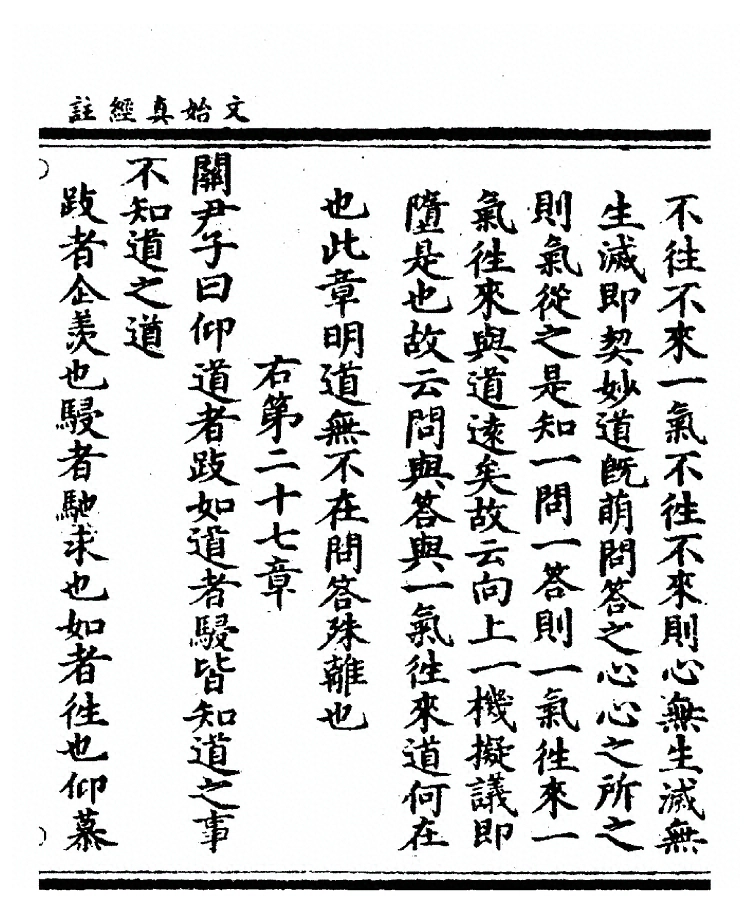 文始真經註
不往不來一氣不徃不來則心無生滅無
生滅即契妙道旣萌問答之心心之所之
則氣從之是知一問一答則一氣徃來一
氣徃來與道遠矣故云向上一機擬議即
墮是也故云問與答與一氣徃來道何在
也此章明道無不在問答殊離也
右第二十七章
關尹子曰仰道者跂如道者駸皆知道之事
不知道之道
跂者企羨也駸者馳求也如者徃也仰慕